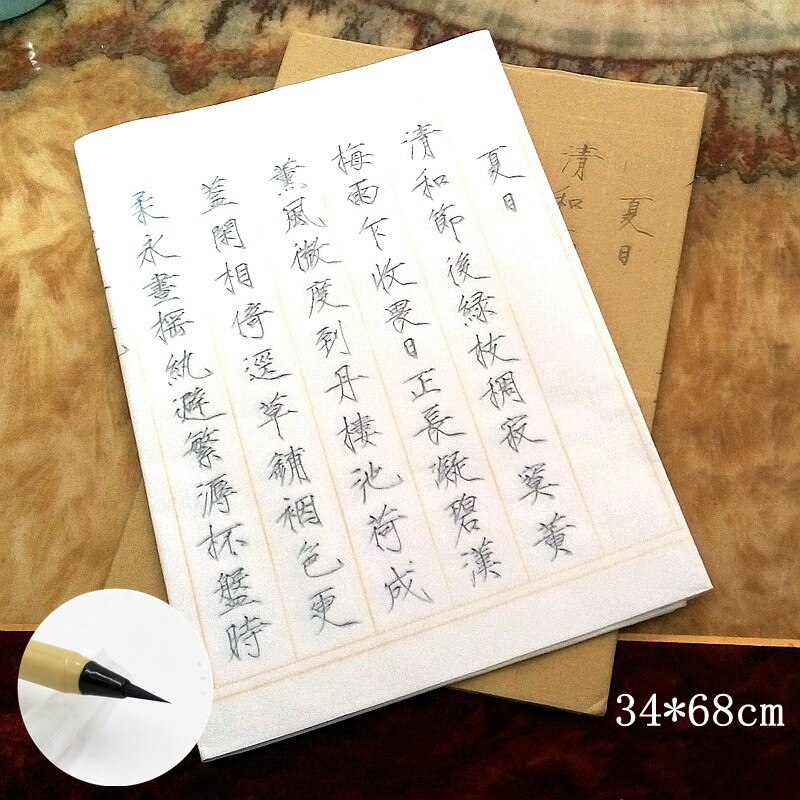 夏日
清和節後緑枝稠寂寞黄
梅雨乍收畏日正長凝碧漢
薰風微度到丹樓池荷成
蓋閑相倚逕草鋪裀色更
柔永晝摇紈避繁溽杯盤時
夏日
清和
34*68cm